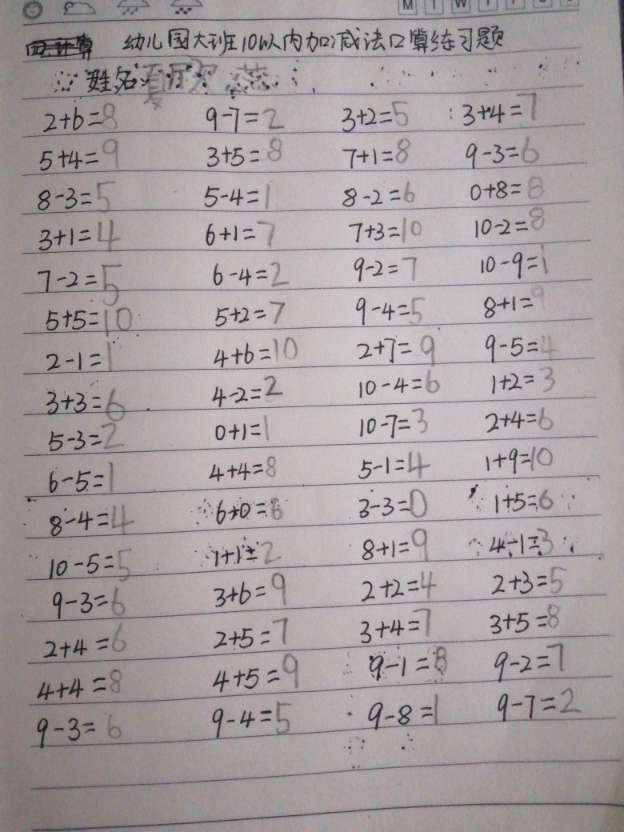 M T W T F S S
幼儿园大班10以内加减法口算练习题
姓名
2+6=8 9-7=2 3+2=5 3+4=7
5+4=9 3+5=8 7+1=8 9-3=6
8-3=5 5-4=1 8-2=6 0+8=8
3+1=4 6+1=7 7+3=10 10-2=8
7-2=5 6-4=2 9-2=7 10-9=1
5+5=10 5+2=7 9-4=5 8+1=9
2-1=1 4+6=10 2+7=9 9-5=4
3+3=6 4-2=2 10-4=6 1+2=3
5-3=2 0+1=1 10-7=3 2+4=6
6-5=1 4+4=8 5-1=4 1+9=10
8-4=4 6+0=6 3-3=0 1+5=6
10-5=5 1+1=2 8+1=9 4-1=3
9-3=6 3+6=9 2+2=4 2+3=5
2+4=6 2+5=7 3+4=7 3+5=8
4+4=8 4+5=9 9-1=8 9-2=7
9-3=6 9-4=5 9-8=1 9-7=2